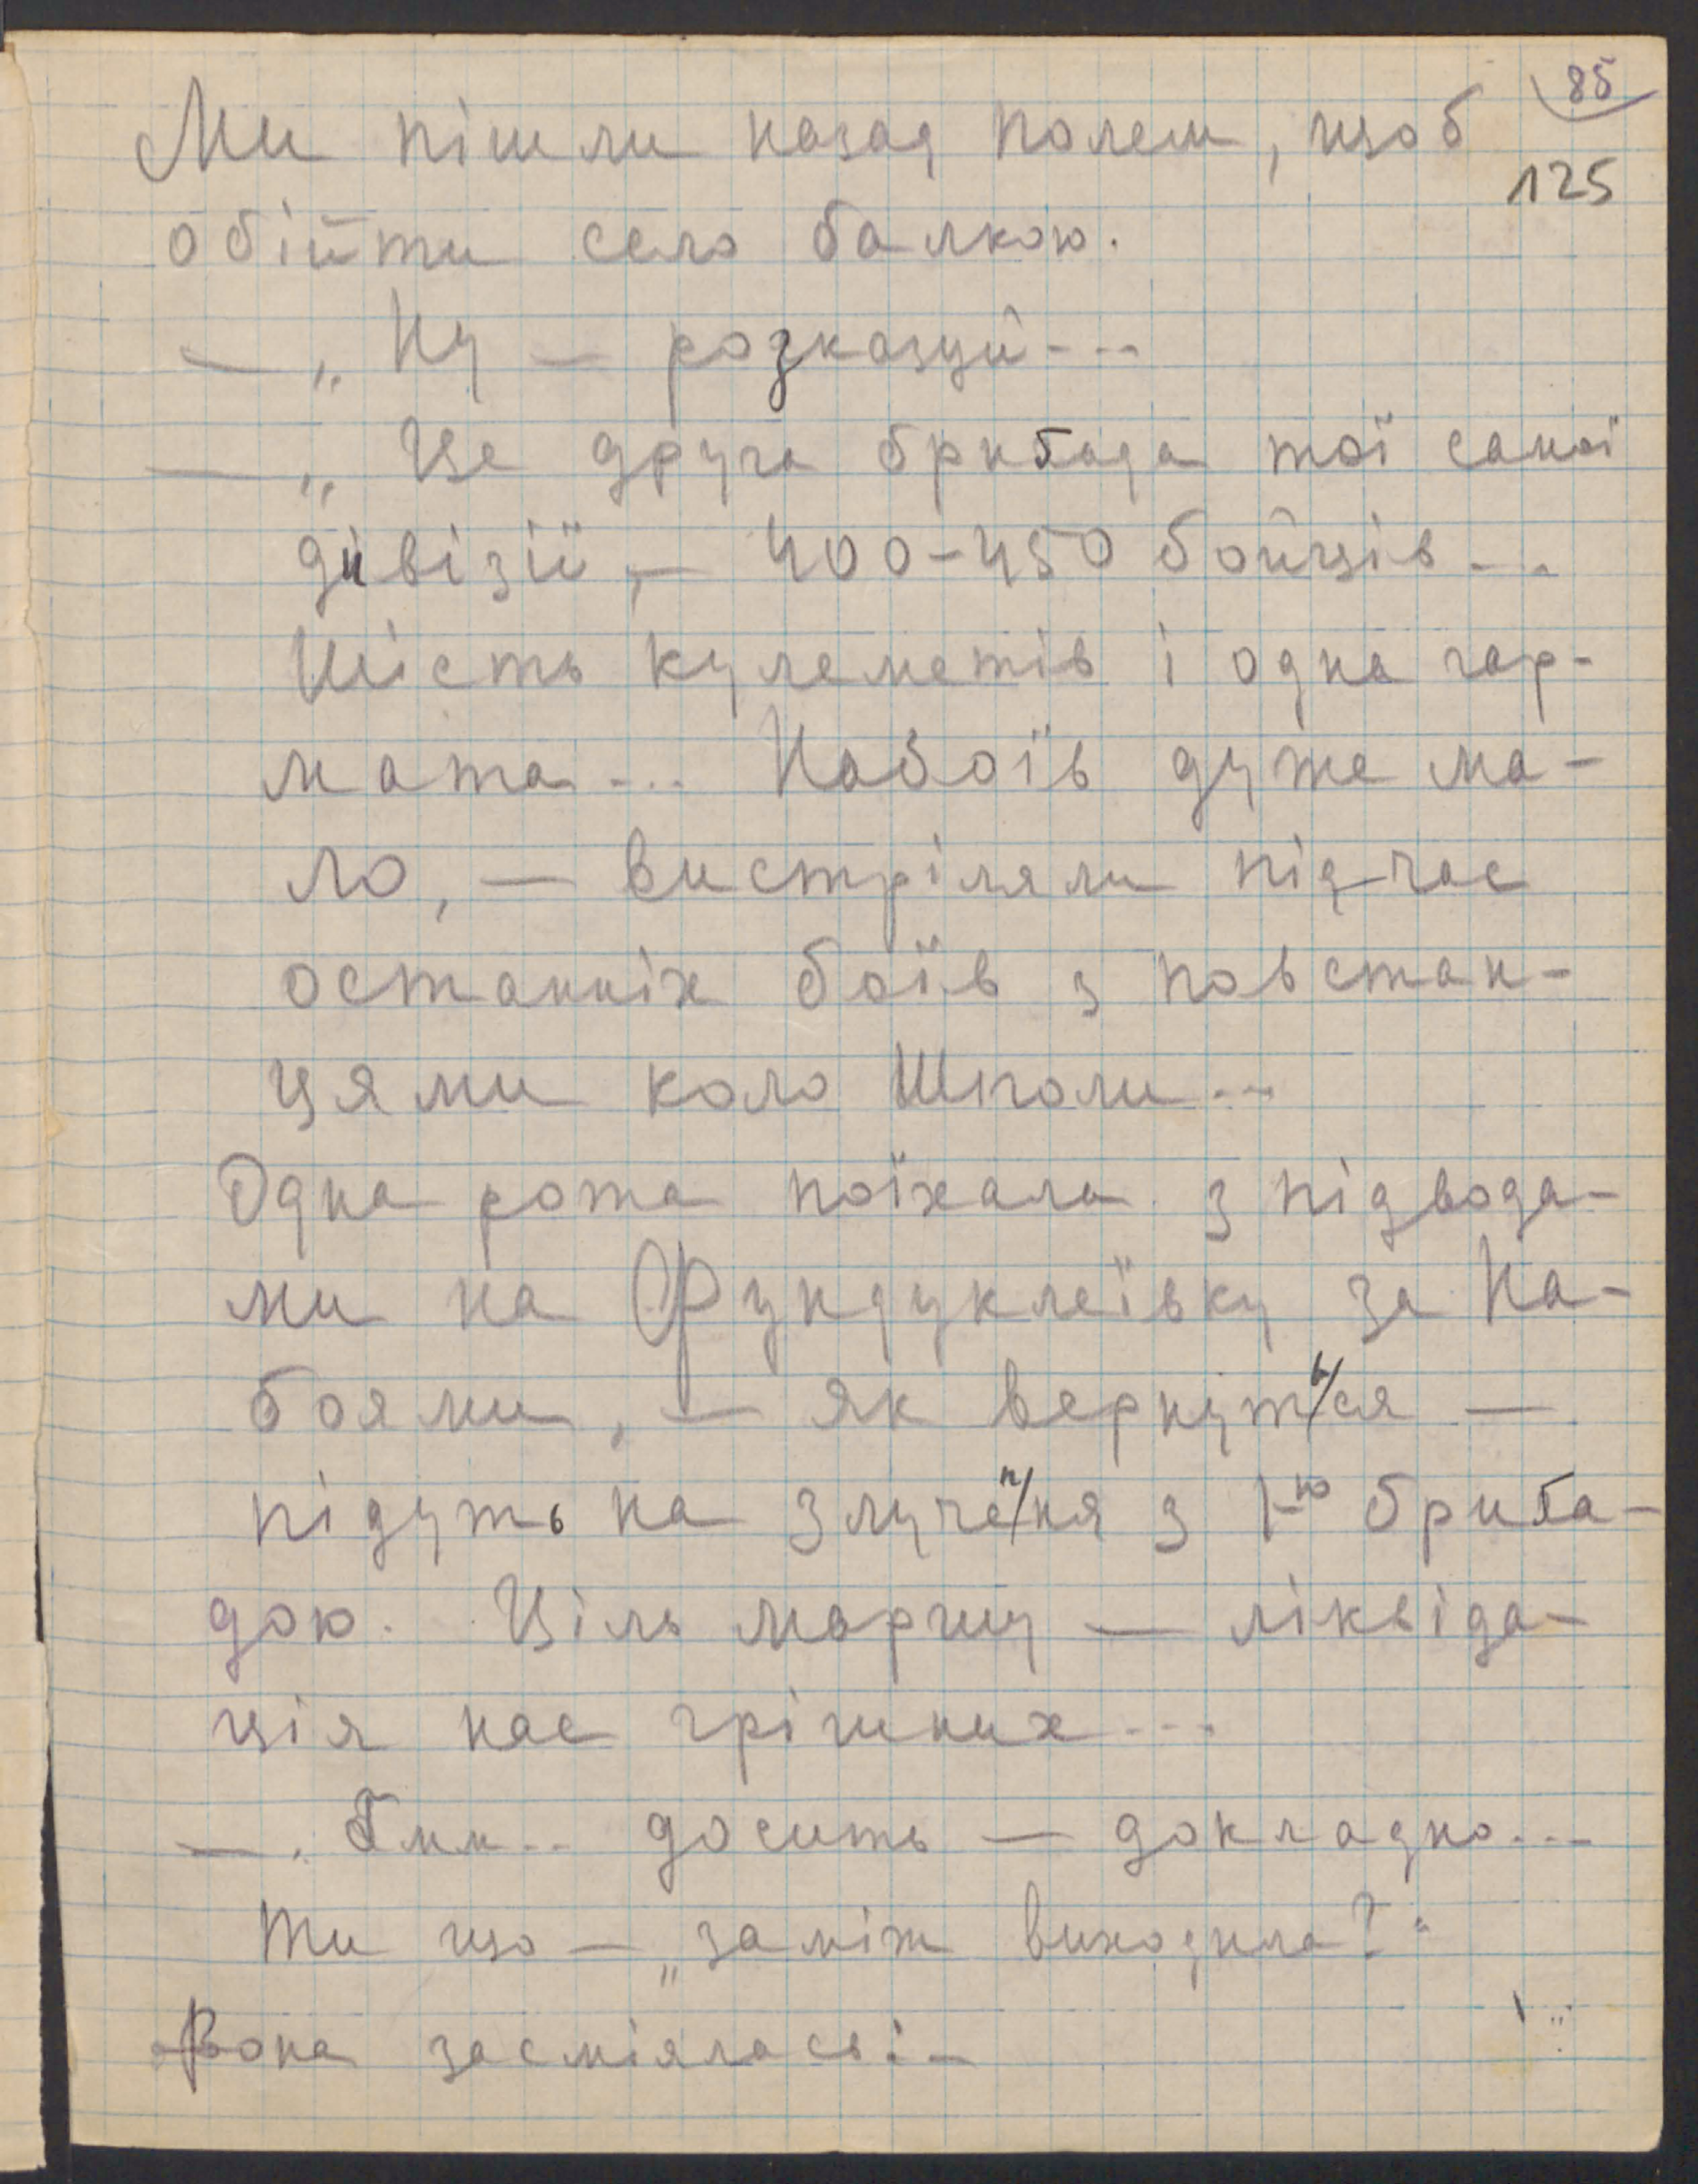 85
Ми пішли назад полем, щоб
125
обійти село балкою.
— „Ну — розказуй ---
— „Це друга бриґада тої самої
дивізії, — 400-450 бойців ...
Шість кулеметів і одна гар-
мата ... Набоїв дуже ма-
ло, — вистріляли підчас
останніх боїв з повстан-
цями коло Шполи ...
Одна рота поїхала з підвода-
ми на Фундуклеївку за на-
боями, — як вернуться —
підуть на злучення з 1-ю бриґа-
дою. Ціль маршу — ліквіда-
ція нас грішних ---
— „Гмм.. досить — докладно ...
Ти що — „заміж виходила?"
Вона засміялась: —